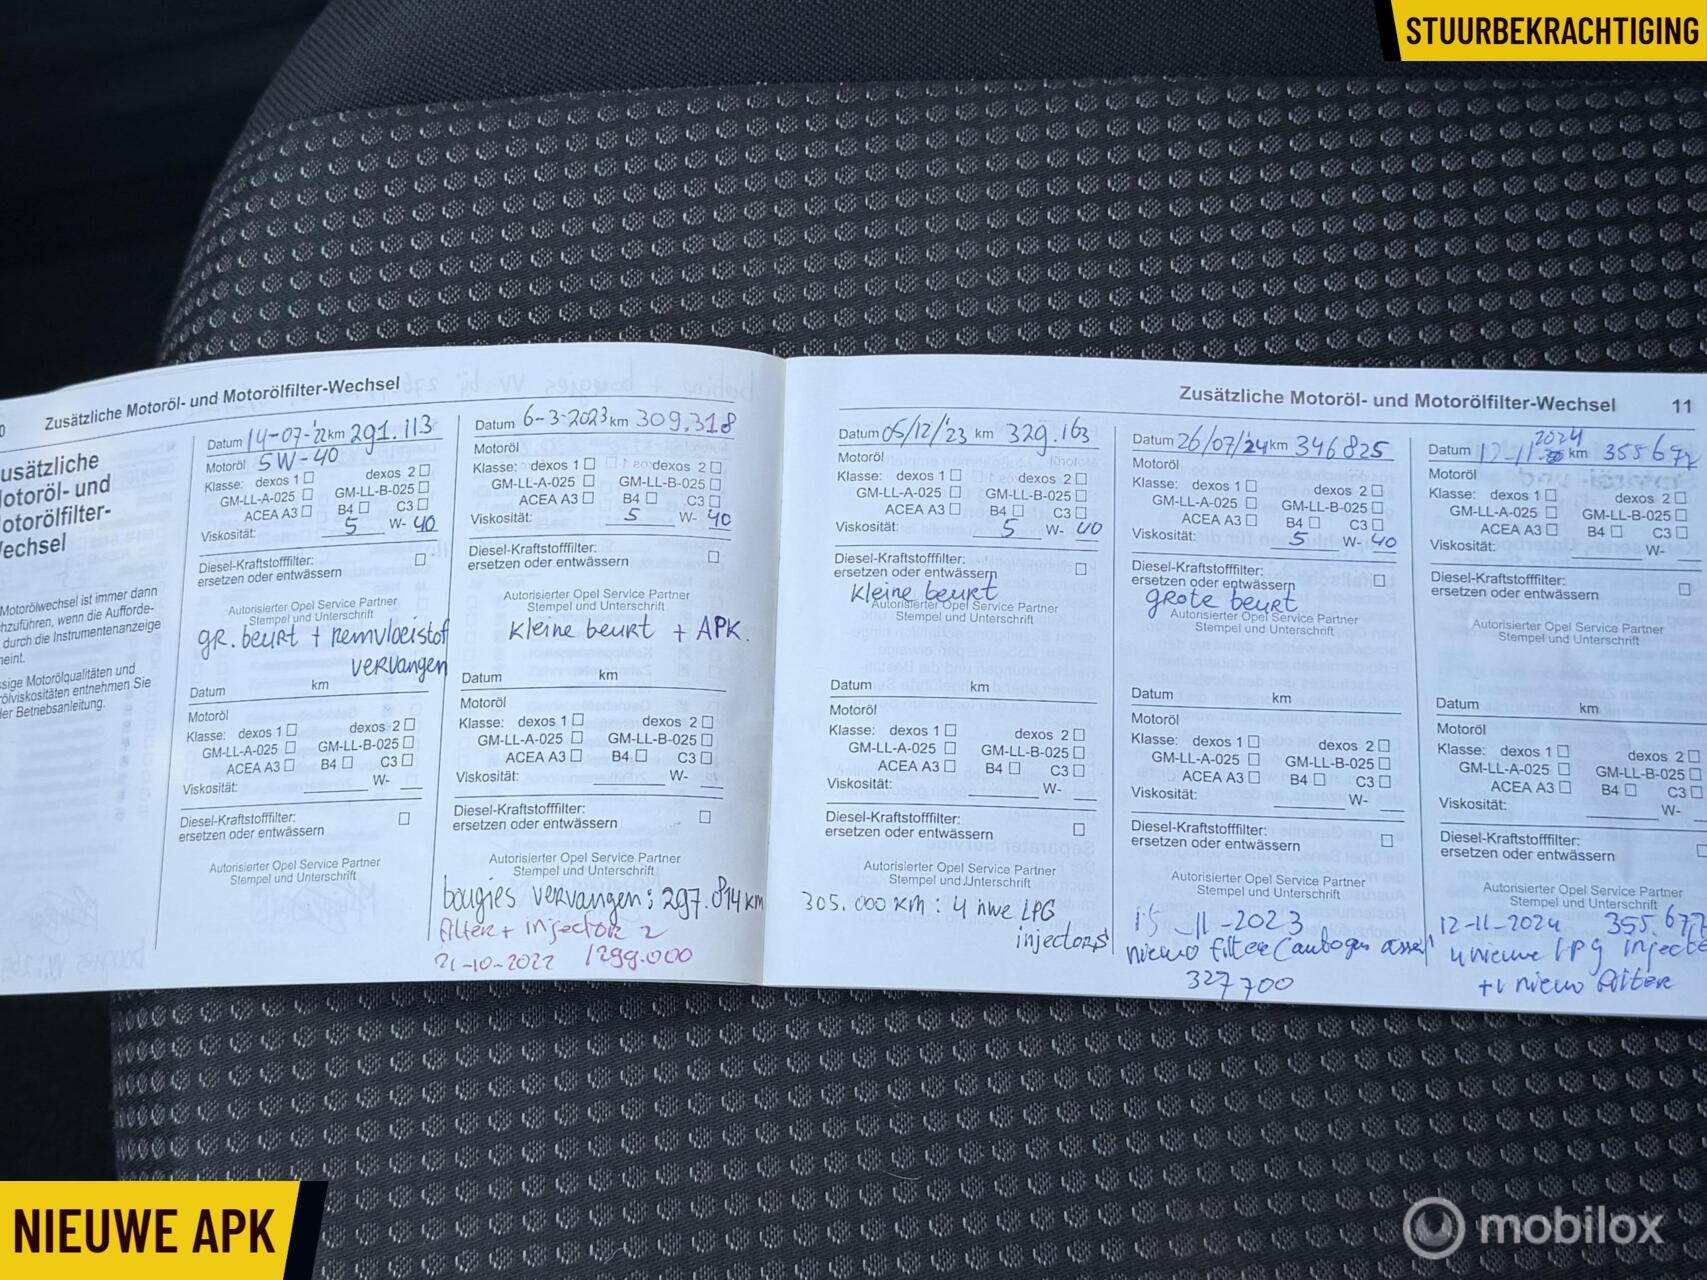 STUURBEKRACHTIGING
Zusätzliche Motoröl- und Motorölfilter-Wechsel
usätzliche
otoröl- und
otorölfilter-
echsel
Motorölwechsel ist immer dann
hzuführen, wenn die Aufforde-
durch die Instrumentenanzeige
eint.
ssige Motorölqualitäten und
ölviskositäten entnehmen Sie
er Betriebsanleitung.
Datum 14-07-'22 km 291.113
Motoröl 5W-40
Klasse: dexos 1 dexos 2
GM-LL-A-025 GM-LL-B-025
ACEA A3 B4 C3
Viskosität: 5 W- 40
Diesel-Kraftstofffilter:
ersetzen oder entwässern
Autorisierter Opel Service Partner
Stempel und Unterschrift
gr. beurt + remvloeistof
vervangen
Datum km
Motoröl
Klasse: dexos 1 dexos 2
GM-LL-A-025 GM-LL-B-025
ACEA A3 B4 C3
Viskosität: W-
Diesel-Kraftstofffilter:
ersetzen oder entwässern
Autorisierter Opel Service Partner
Stempel und Unterschrift
Datum 6-3-2023 km 309.318
Motoröl
Klasse: dexos 1 dexos 2
GM-LL-A-025 GM-LL-B-025
ACEA A3 B4 C3
Viskosität: 5 W- 40
Diesel-Kraftstofffilter:
ersetzen oder entwässern
Autorisierter Opel Service Partner
Stempel und Unterschrift
Kleine beurt + APK.
Datum km
Motoröl
Klasse: dexos 1 dexos 2
GM-LL-A-025 GM-LL-B-025
ACEA A3 B4 C3
Viskosität: W-
Diesel-Kraftstofffilter:
ersetzen oder entwässern
Autorisierter Opel Service Partner
Stempel und Unterschrift
bougies vervangen: 297.814 km
filter + injector 2
21-10-2022 1299.000
Zusätzliche Motoröl- und Motorölfilter-Wechsel 11
Datum 05/12/'23 km 329.163
Motoröl
Klasse: dexos 1 dexos 2
GM-LL-A-025 GM-LL-B-025
ACEA A3 B4 C3
Viskosität: 5 W- 40
Diesel-Kraftstofffilter:
ersetzen oder entwässern
kleine beurt
Autorisierter Opel Service Partner
Stempel und Unterschrift
Datum km
Motoröl
Klasse: dexos 1 dexos 2
GM-LL-A-025 GM-LL-B-025
ACEA A3 B4 C3
Viskosität: W-
Diesel-Kraftstofffilter:
ersetzen oder entwässern
Autorisierter Opel Service Partner
Stempel und Unterschrift
305.000 km: 4 nwe LPG
injectors
Datum 26/07/'24 km 346825
Motoröl
Klasse: dexos 1 dexos 2
GM-LL-A-025 GM-LL-B-025
ACEA A3 B4 C3
Viskosität: 5 W- 40
Diesel-Kraftstofffilter:
ersetzen oder entwässern
grote beurt
Autorisierter Opel Service Partner
Stempel und Unterschrift
Datum km
Motoröl
Klasse: dexos 1 dexos 2
GM-LL-A-025 GM-LL-B-025
ACEA A3 B4 C3
Viskosität: W-
Diesel-Kraftstofffilter:
ersetzen oder entwässern
Autorisierter Opel Service Partner
Stempel und Unterschrift
15-11-2023
nieuw filter (autogas assen
327700
2024
Datum 12-11- km 355677
Motoröl
Klasse: dexos 1 dexos 2
GM-LL-A-025 GM-LL-B-025
ACEA A3 B4 C3
Viskosität: W-
Diesel-Kraftstofffilter:
ersetzen oder entwässern
Autorisierter Opel Service Partner
Stempel und Unterschrift
Datum km
Motoröl
Klasse: dexos 1 dexos 2
GM-LL-A-025 GM-LL-B-025
ACEA A3 B4 C3
Viskosität: W-
Diesel-Kraftstofffilter:
ersetzen oder entwässern
Autorisierter Opel Service Partner
Stempel und Unterschrift
12-11-2024 355.677
4 nieuwe LPG injecto
+ 1 nieuw filter
NIEUWE APK
mobilox